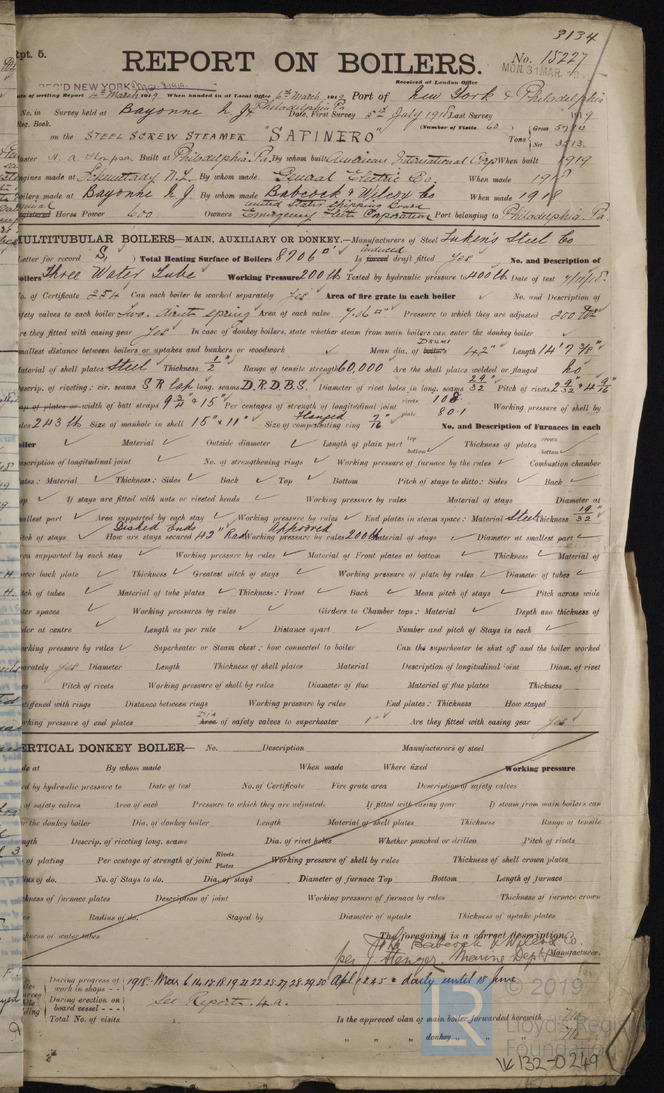 3134
Rpt. 5.
REPORT ON BOILERS.
No. 15227
REC'D NEW YORK Mar 8 1919
Received at London Office MON. 31 MAR. 19
Date of writing Report 4th March 1919 When handed in at Local Office 6th March 1919 Port of New York & Philadelphia
No. in Survey held at Bayonne N.J. & Philadelphia Pa Date, First Survey 5th July 1918 Last Survey 1919
Reg. Book. (Number of Visits 60)
on the STEEL SCREW STEAMER "SAPINERO" Tons Gross Net
Master Built at Philadelphia. Pa. By whom built American International Corp When built 1919
Engines made at Schenectady N.Y. By whom made General Electric Co When made 1918
Boilers made at Bayonne N.J. By whom made Babcock & Wilcox Co When made 1918
Registered Horse Power 600 Owners United States Shipping Board Emergency Fleet Corporation Port belonging to Philadelphia. Pa.
MULTITUBULAR BOILERS—MAIN, AUXILIARY OR DONKEY.—Manufacturers of Steel Luken's Steel Co
Letter for record S, Total Heating Surface of Boilers 8706 □' Is forced induced draft fitted Yes No. and Description of
Boilers Three Water Tube Working Pressure 200 lb Tested by hydraulic pressure to 400 lb Date of test
No. of Certificate 254 Can each boiler be worked separately Yes Area of fire grate in each boiler ✓ No. and Description of
safety valves to each boiler Two. Direct Spring Area of each valve 7.06 □" Pressure to which they are adjusted 200
Are they fitted with easing gear Yes In case of donkey boilers, state whether steam from main boilers can enter the donkey boiler ✓
Smallest distance between boilers or uptakes and bunkers or woodwork Mean dia. of boilers DRUMS 42" Length 14' 7 3/8"
Material of shell plates Steel Thickness 1/2 Range of tensile strength 60,000 Are the shell plates welded or flanged no
Descrip. of riveting: cir. seams S R Lap long. seams D.R.D.B.S. Diameter of rivet holes in long. seams 29/32 Pitch of rivets 2 9/32 & 4 9/16
Lap of plates or width of butt straps 9 3/4 & 15" Per centages of strength of longitudinal joint rivets 108 plate 80.1 Working pressure of shell by
rules 243 lb Size of manhole in shell 15" x 11" Size of compensating ring Flanged 7/16 No. and Description of Furnaces in each
boiler ✓ Material ✓ Outside diameter ✓ Length of plain part top bottom ✓ Thickness of plates crown bottom ✓
Description of longitudinal joint ✓ No. of strengthening rings ✓ Working pressure of furnace by the rules ✓ Combustion chamber
plates: Material ✓ Thickness: Sides ✓ Back ✓ Top ✓ Bottom Pitch of stays to ditto: Sides ✓ Back ✓
Top ✓ If stays are fitted with nuts or riveted heads ✓ Working pressure by rules Material of stays Diameter at
smallest part ✓ Area supported by each stay ✓ Working pressure by rules ✓ End plates in steam space: Material Steel Thickness 19/32"
Pitch of stays ✓ How are stays secured Dished Ends 42" Rad Working pressure by rules Approved 200 lb Material of stays ✓ Diameter at smallest part ✓
Area supported by each stay ✓ Working pressure by rules ✓ Material of Front plates at bottom ✓ Thickness ✓ Material of
Lower back plate ✓ Thickness ✓ Greatest pitch of stays ✓ Working pressure of plate by rules ✓ Diameter of tubes ✓
Pitch of tubes ✓ Material of tube plates ✓ Thickness: Front ✓ Back ✓ Mean pitch of stays ✓ Pitch across wide
water spaces ✓ Working pressures by rules ✓ Girders to Chamber tops: Material ✓ Depth and thickness of
girder at centre ✓ Length as per rule ✓ Distance apart ✓ Number and pitch of Stays in each ✓
Working pressure by rules ✓ Superheater or Steam chest; how connected to boiler Can the superheater be shut off and the boiler worked
separately Yes Diameter Length Thickness of shell plates Material Description of longitudinal joint Diam. of rivet
Pitch of rivets Working pressure of shell by rules Diameter of flue Material of flue plates Thickness
stiffened with rings Distance between rings Working pressure by rules End plates: Thickness How stayed
Working pressure of end plates Area DIA of safety valves to superheater 1" Are they fitted with easing gear Yes
VERTICAL DONKEY BOILER— No. Description Manufacturers of steel
Made at By whom made When made Where fixed Working pressure
tested by hydraulic pressure to Date of test No. of Certificate Fire grate area Description of safety valves
of safety valves Area of each Pressure to which they are adjusted If fitted with easing gear If steam from main boilers can
enter the donkey boiler Dia. of donkey boiler Length Material of shell plates Thickness Range of tensile
strength Descrip. of riveting long. seams Dia. of rivet holes Whether punched or drilled Pitch of rivets
Lap of plating Per centage of strength of joint Rivets Plates Working pressure of shell by rules Thickness of shell crown plates
Radius of do. No. of Stays to do. Dia. of stays Diameter of furnace Top Bottom Length of furnace
Thickness of furnace plates Description of joint Working pressure of furnace by rules Thickness of furnace crown
Radius of do. Stayed by Diameter of uptake Thickness of uptake plates
Thickness of water tubes
The foregoing is a correct description,
The Babcock & Wilcox Co.
per Marine Dept Manufacturer.
During progress of work in shops - - 1918: Mar 6 14 17 18 19 21 22 25 27 28 29 30 Apl 1 2 4 5 & daily until 15 June
During erection on board vessel - - - See Report 4.a.
Total No. of visits
Is the approved plan of main boiler forwarded herewith
" " " donkey " " "
© 2019
Lloyd's Register
Foundation
LR
W132-0249